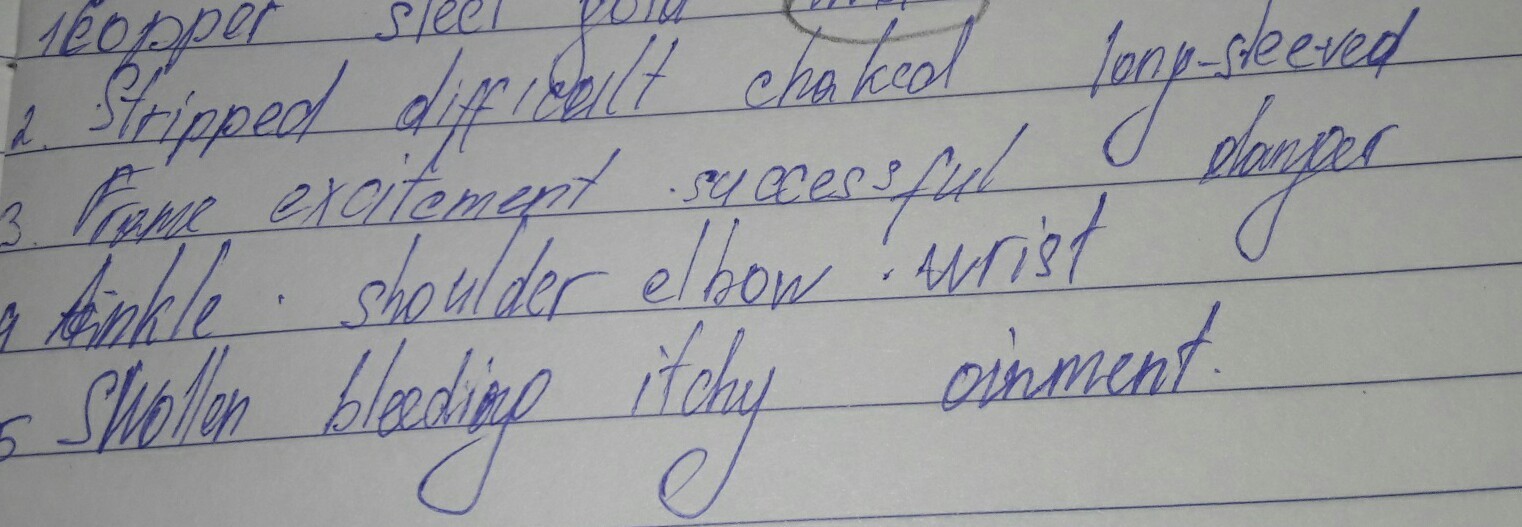 1 Copper steel gold
2. Stripped difficult chaked long-sleeved
3. Frame excitement successful danger
4 Ankle shoulder elbow wrist
5 Swollen bleeding itchy oinment.